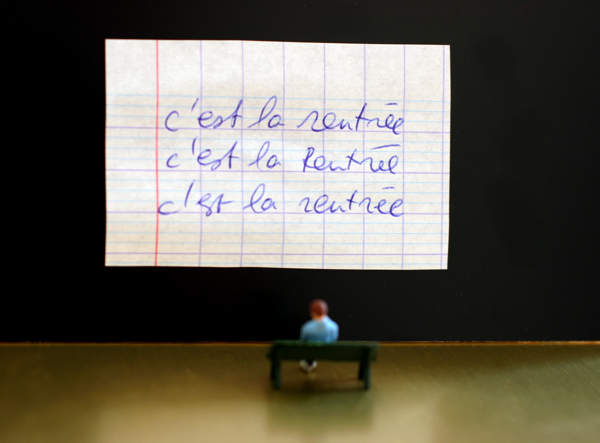 c'est la rentrée
c'est la Rentrée
c'est la rentrée